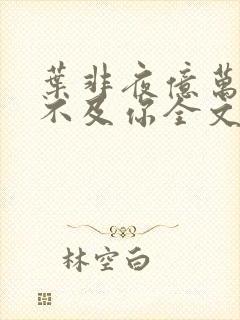 葉非夜億萬
不及你全文
林空白